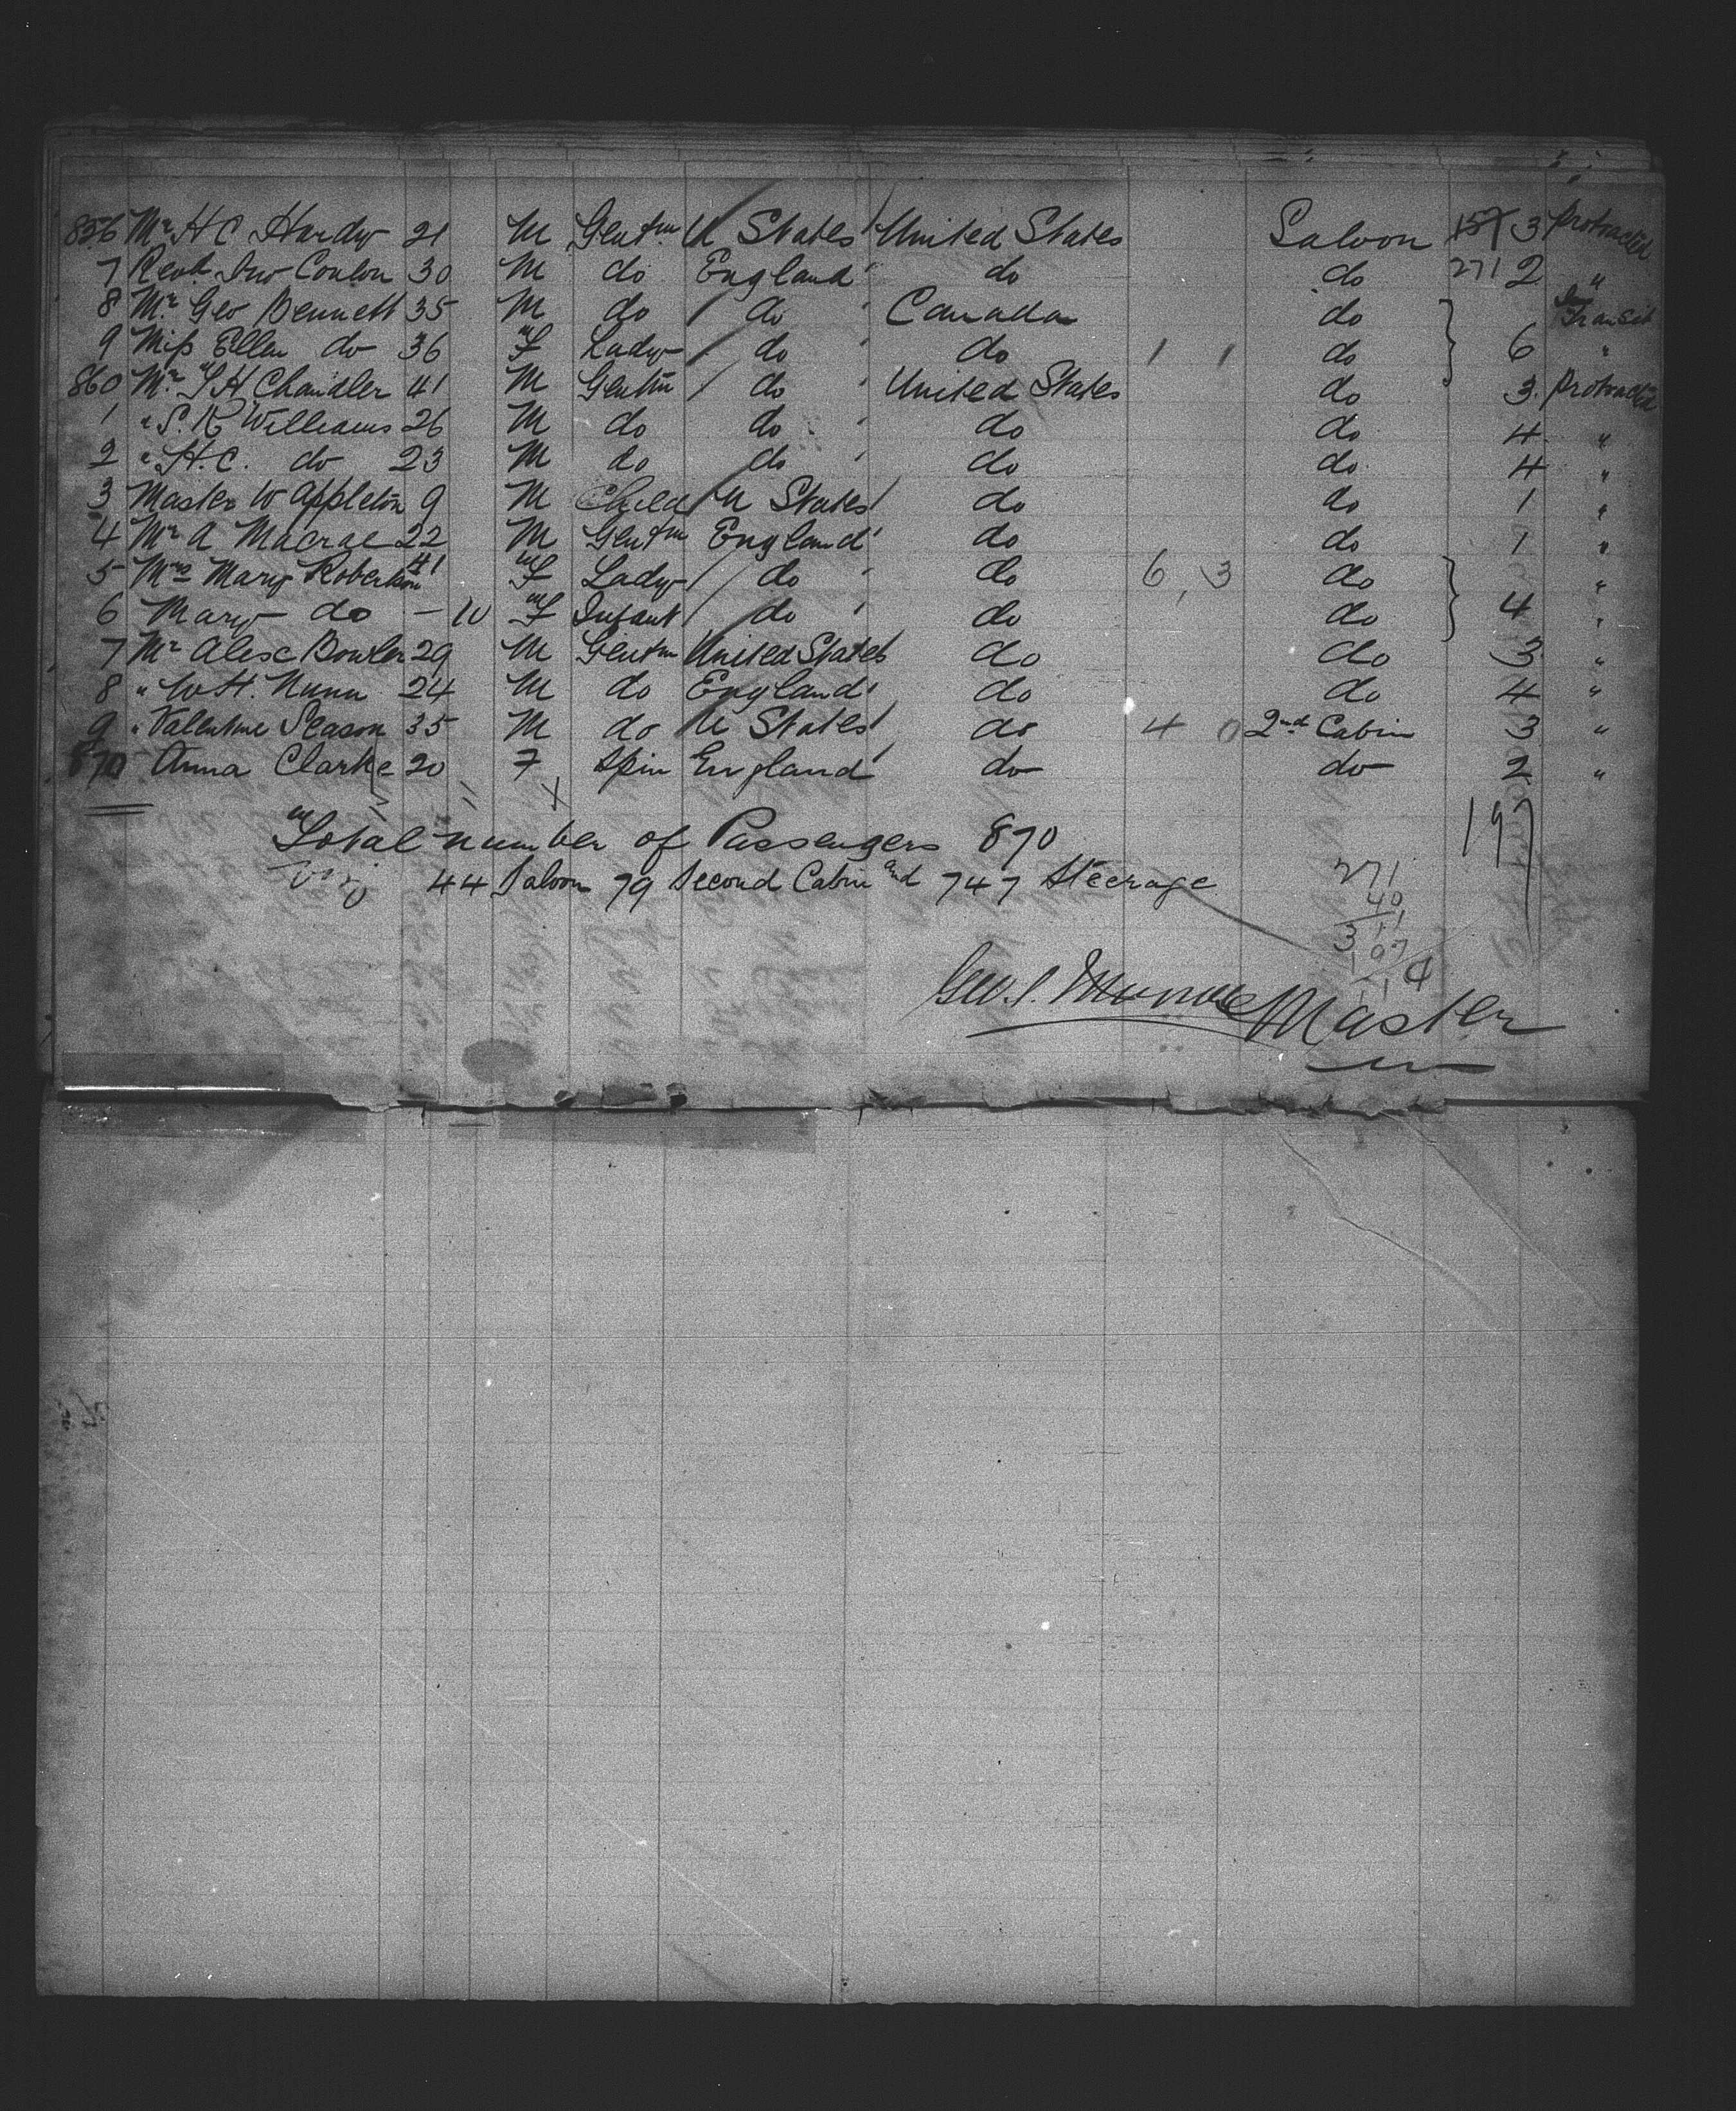 856 Mr H C Hardy 21 M Gentm U States United States Saloon 157 3 Protracted
7 Revd Jno Conlon 30 M do England do do 271 2 "
8 Mr Geo Bennett 35 M do do Canada do In Transit
9 Miss Ellen do 36 F Lady do do 1 1 do 6 "
860 Mr T H Chandler 41 M Gentm do United States do 3 Protracted
1 " S. R Williams 26 M do do do do 4 "
2 " H. C. do 23 M do do do do 4 "
3 Master W Appleton 9 M Child U States do do 1 "
4 Mr A Macrae 22 M Gentm England do do 1 "
5 Mrs Mary Robertson 41 F Lady do do 6, 3 do "
6 Mary do - 10 F Infant do do do 4 "
7 Mr Alex Bowler 29 M Gentm United States do do 3 "
8 " W H. Nunn 24 M do England do do 4 "
9 " Valentine Season 35 M do U States do 4 0 2nd Cabin 3 "
870 Anna Clarke 20 F Spin England do do 2 "
197
Total number of Passengers 870
Viz 44 Saloon 79 Second Cabin and 747 Steerage
271
40
311
197
114
Geo. S. Munroe Master